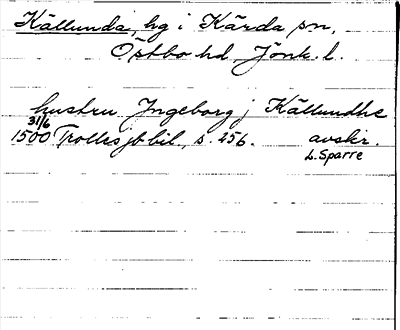 Källunda, hg i Kärda sn,
Östbo hd Jönk. l.
hustru Ingeborg j Källundhe
31/6
1500 Trolles jb bil., s. 256. avskr.
L. Sparre